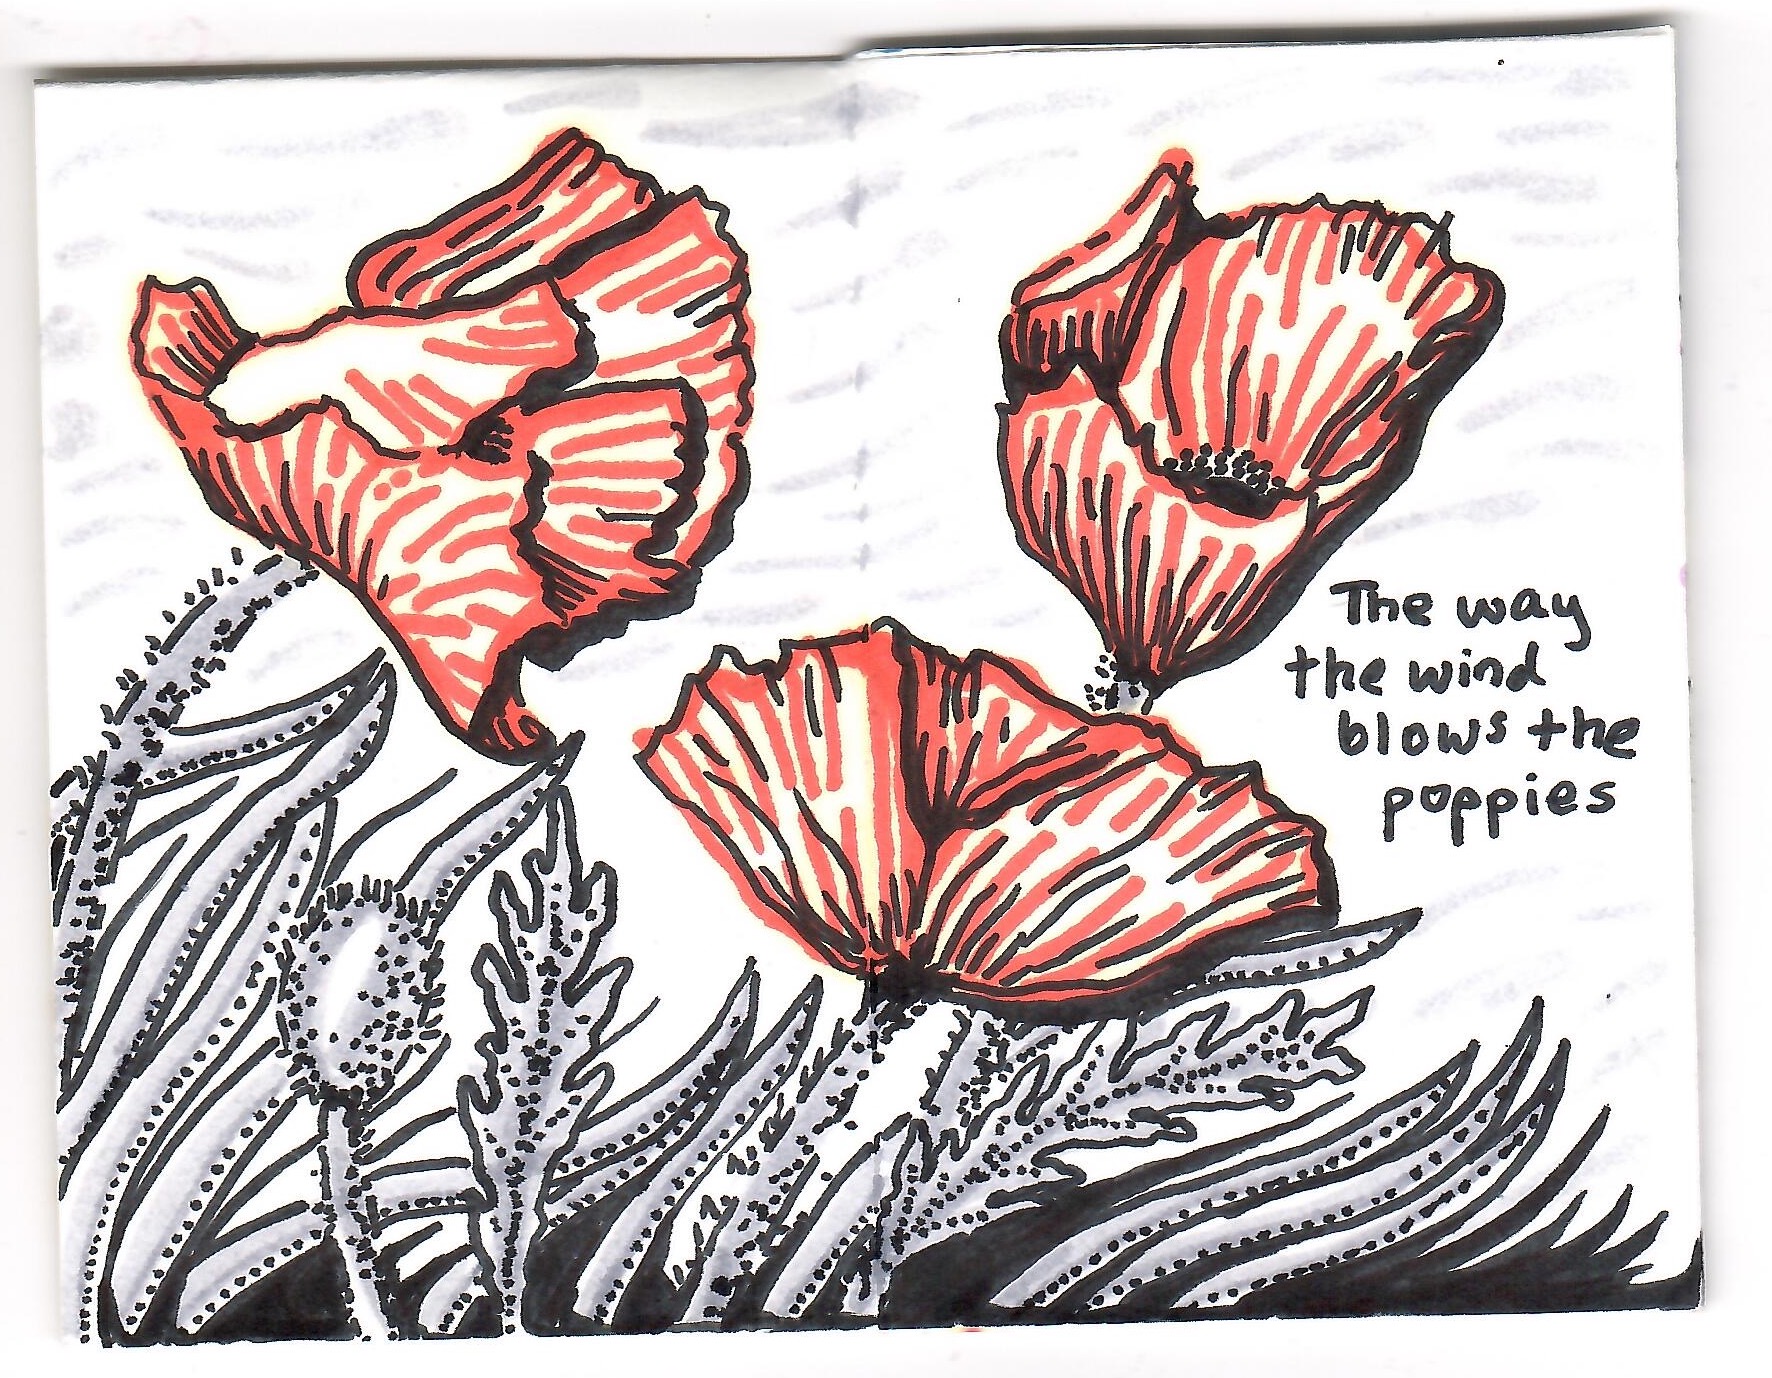 The way
the wind
blows the
poppies